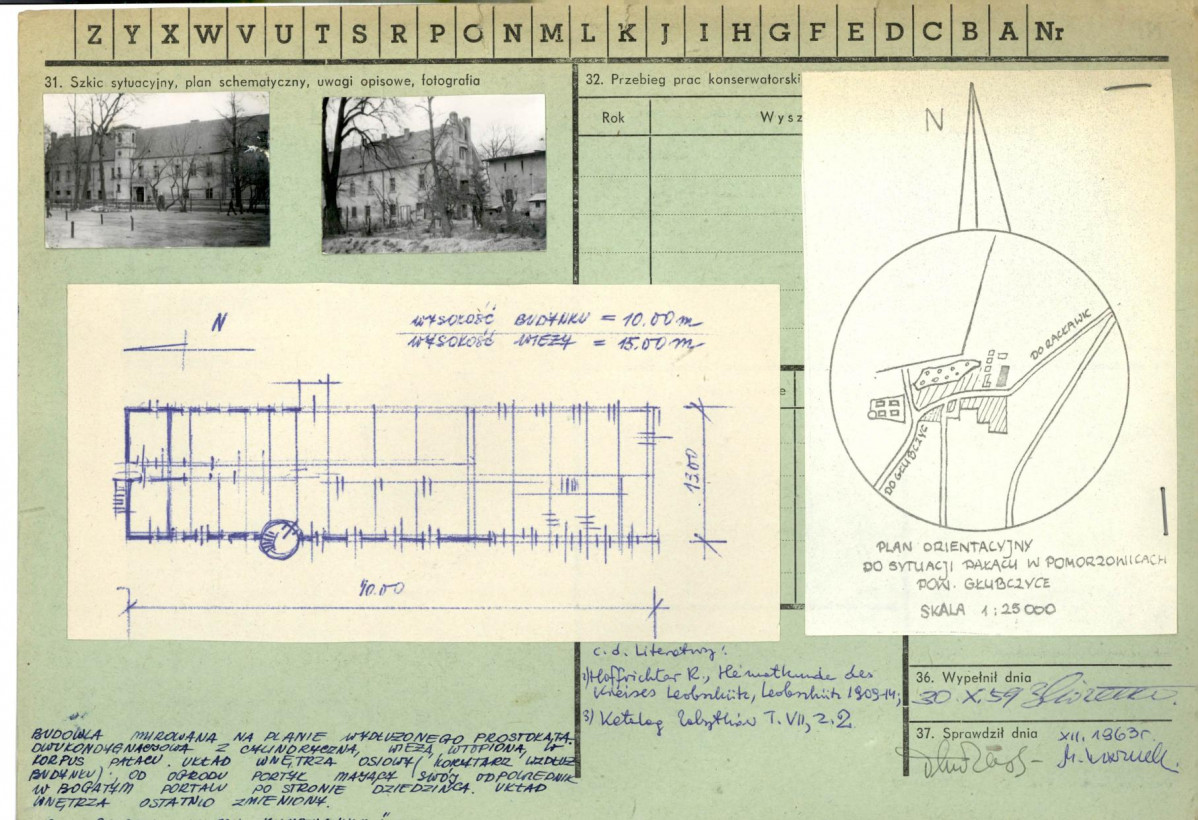 Z Y X W V U T S R P O N M L K J I H G F E D C B A Nr
31. Szkic sytuacyjny, plan schematyczny, uwagi opisowe, fotografia
32. Przebieg prac konserwatorski
Rok
Wysz
N
DO RACŁAWIC
DO GŁUBCZYC
PLAN ORIENTACYJNY
DO SYTUACJI PAŁACU W POMORZOWICACH
POW. GŁUBCZYCE
SKALA 1:25000
N
WYSOKOŚĆ BUDYNKU = 10.00 m
WYSOKOŚĆ WIEŻY = 15.00 m
13.00
40.00
c.d. Literatury:
Hoffrichter R., Heimatkunde des
Kreises Leobschütz, Leobschütz 1909-14;
3) Katalog Zabytków T. VII, z. 2
36. Wypełnił dnia
30.X.59
37. Sprawdził dnia XII. 1963r.
BUDOWLA MUROWANA NA PLANIE WYDŁUŻONEGO PROSTOKĄTA.
DWUKONDYGNACJOWA Z CYLINDRYCZNĄ, WIEŻĄ, WTOPIONĄ, W
KORPUS PAŁACU. UKŁAD WNĘTRZA OSIOWY (KORYTARZ WZDŁUŻ
BUDYNKU), OD OGRODU PORTYK MAJĄCY SWÓJ ODPOWIEDNIK
W BOGATYM PORTALU PO STRONIE DZIEDZIŃCA. UKŁAD
WNĘTRZA OSTATNIO ZMIENIONY.